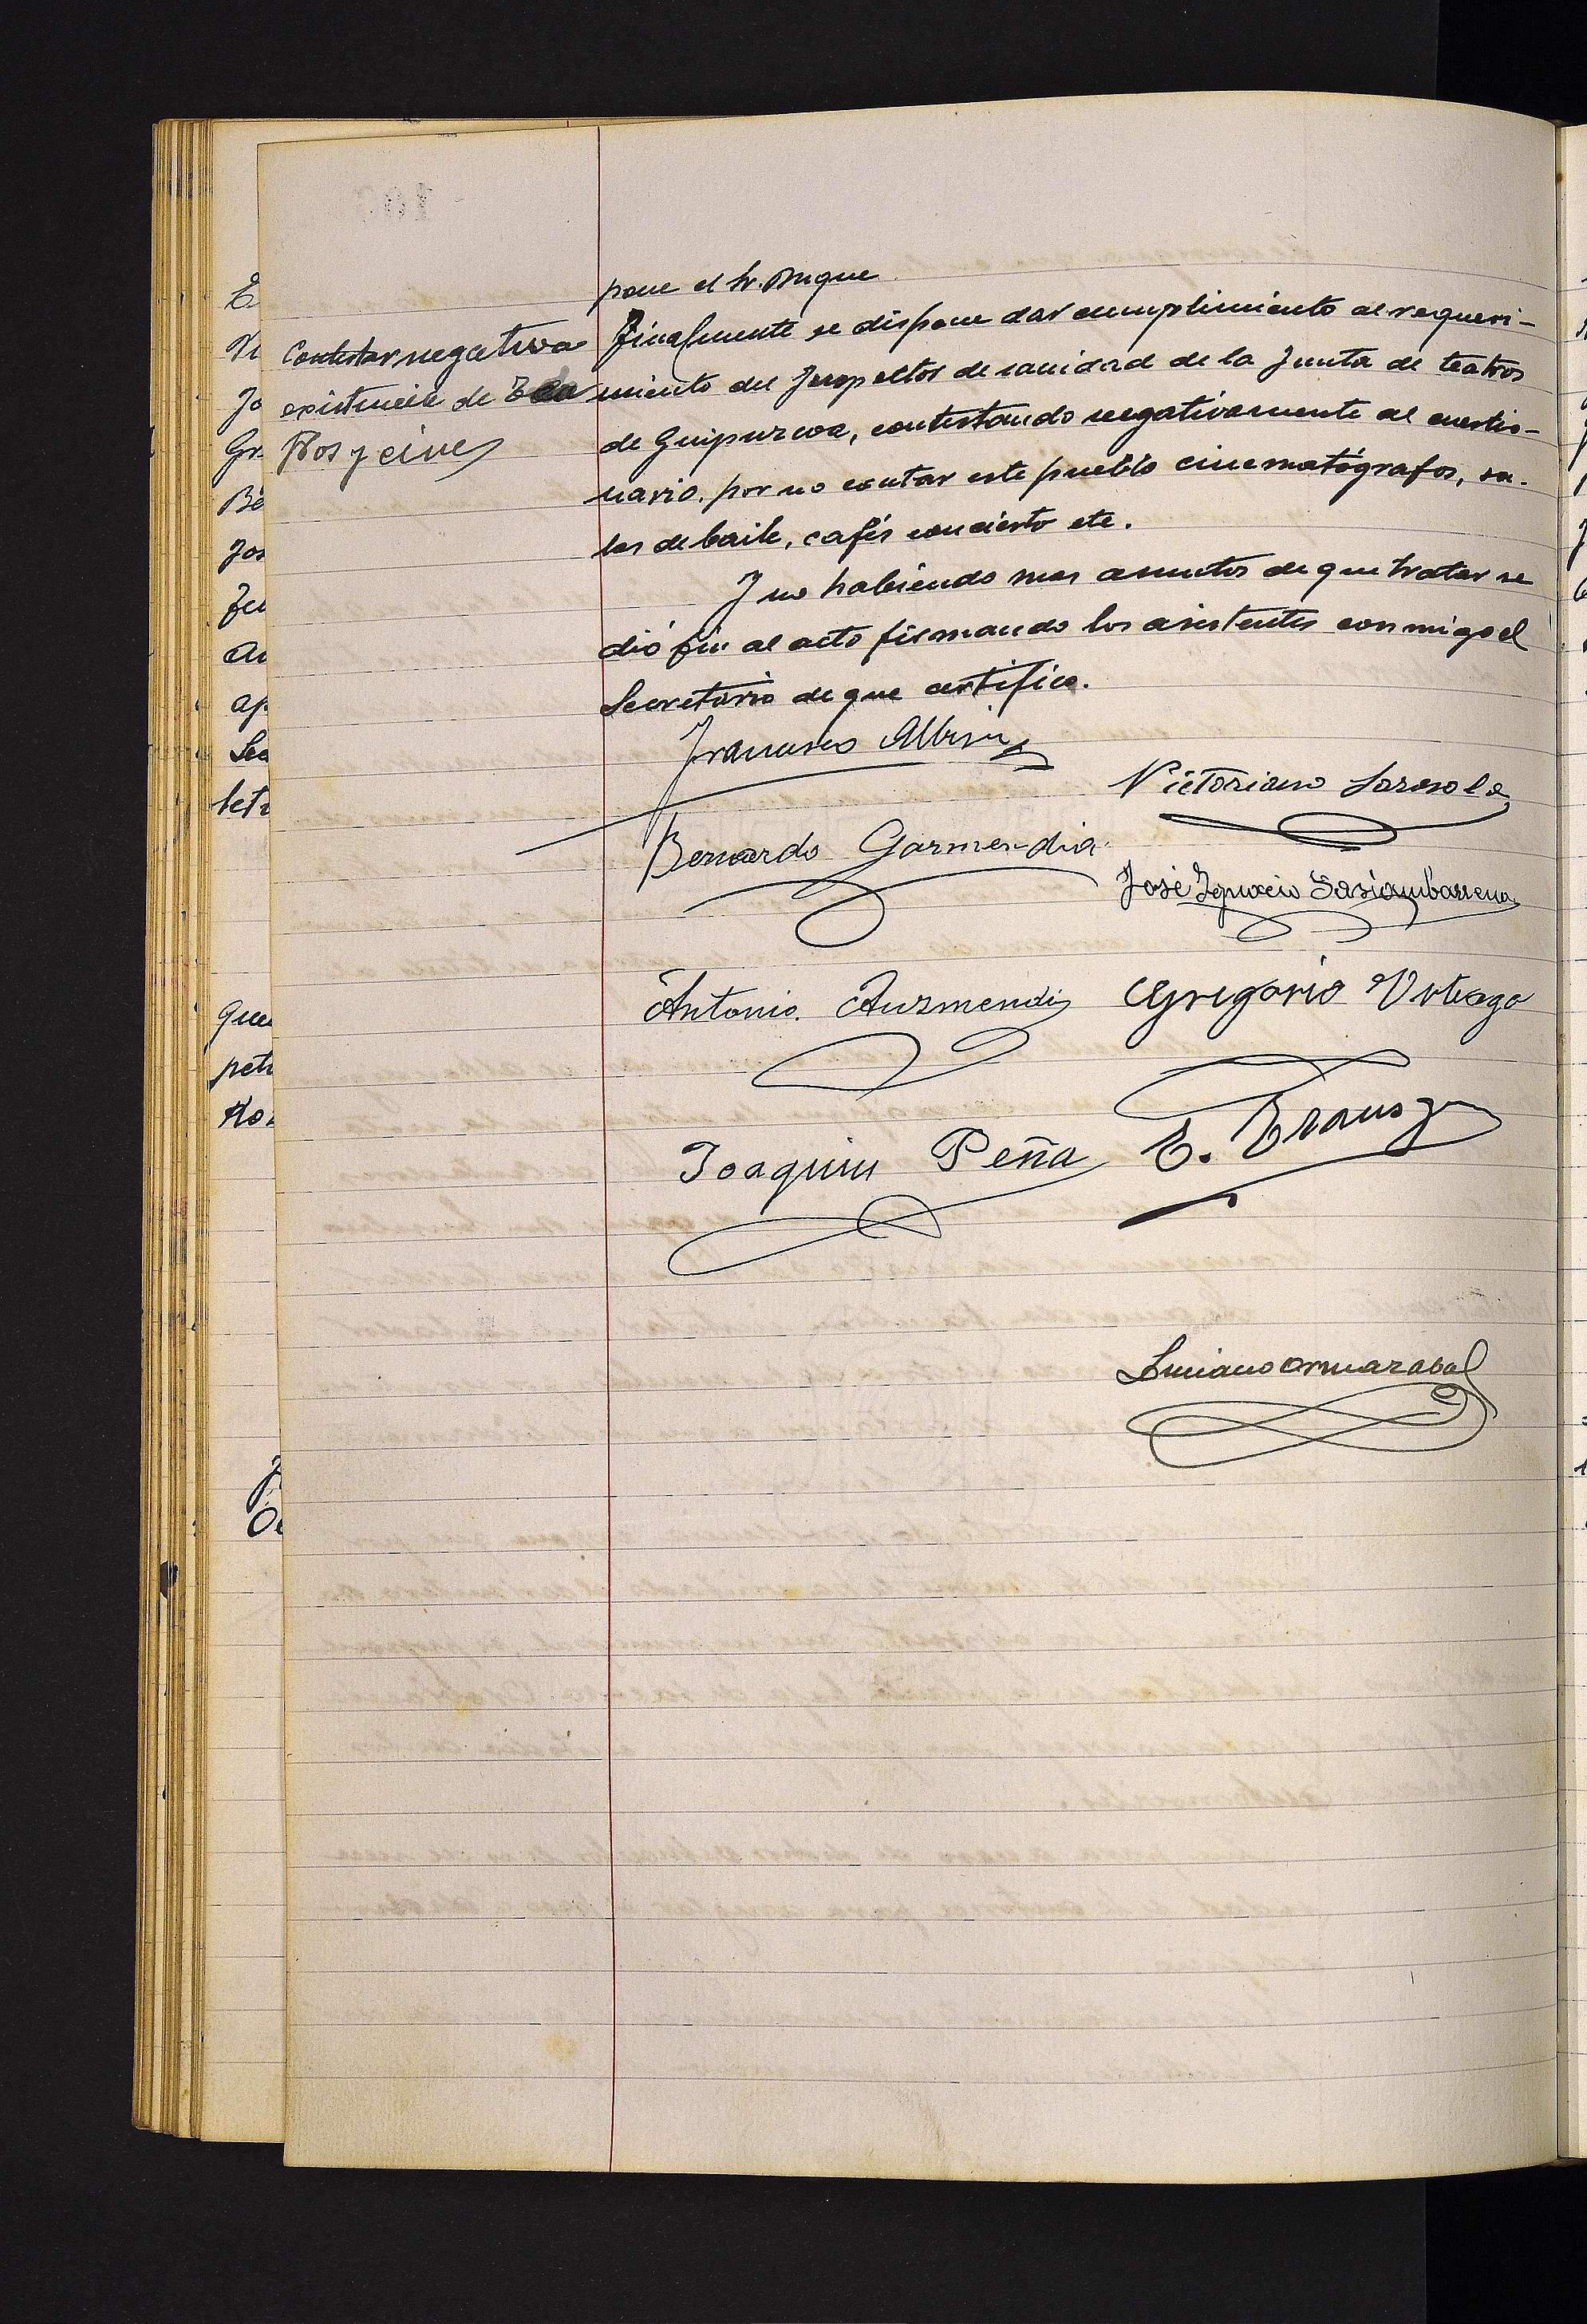 pone el Sr. Duque
Contestar negativa
existencia de Tea
tros y cines
Finalmente se dispone dar cumplimiento al requeri-
miento del Inspector de sanidad de la Junta de teatros
de Guipuzcoa, contestando negativamente al cuestio-
nario, por no contar este pueblo cinematógrafos, sa-
las de baile, cafés concierto etc.
Y no habiendo mas asuntos de que tratar se
dió fin al acto firmando los asistentes conmigo el
Secretario de que certifico.
Francisco Albisu
Victoriano Sarasola
Bernardo Garmendia
José Ignacio Sasiambarrena
Antonio Auzmendi
Gregorio Urteaga
Joaquin Peña
E.
Luciano Ormazabal